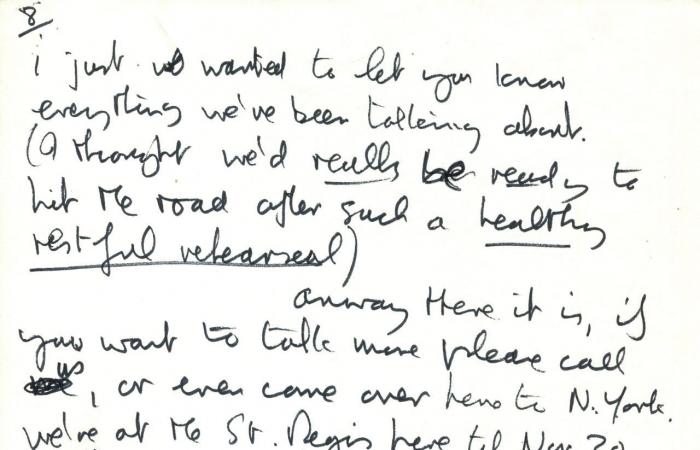 8
i just wanted to let you know
everything we've been talking about.
(I thought we'd really be ready to
hit the road after such a healthy
restful rehearsal)
anway there it is, if
you want to talk more please call
us, or even come over here to N. York.
we're at the St. Regis here til Nov 30